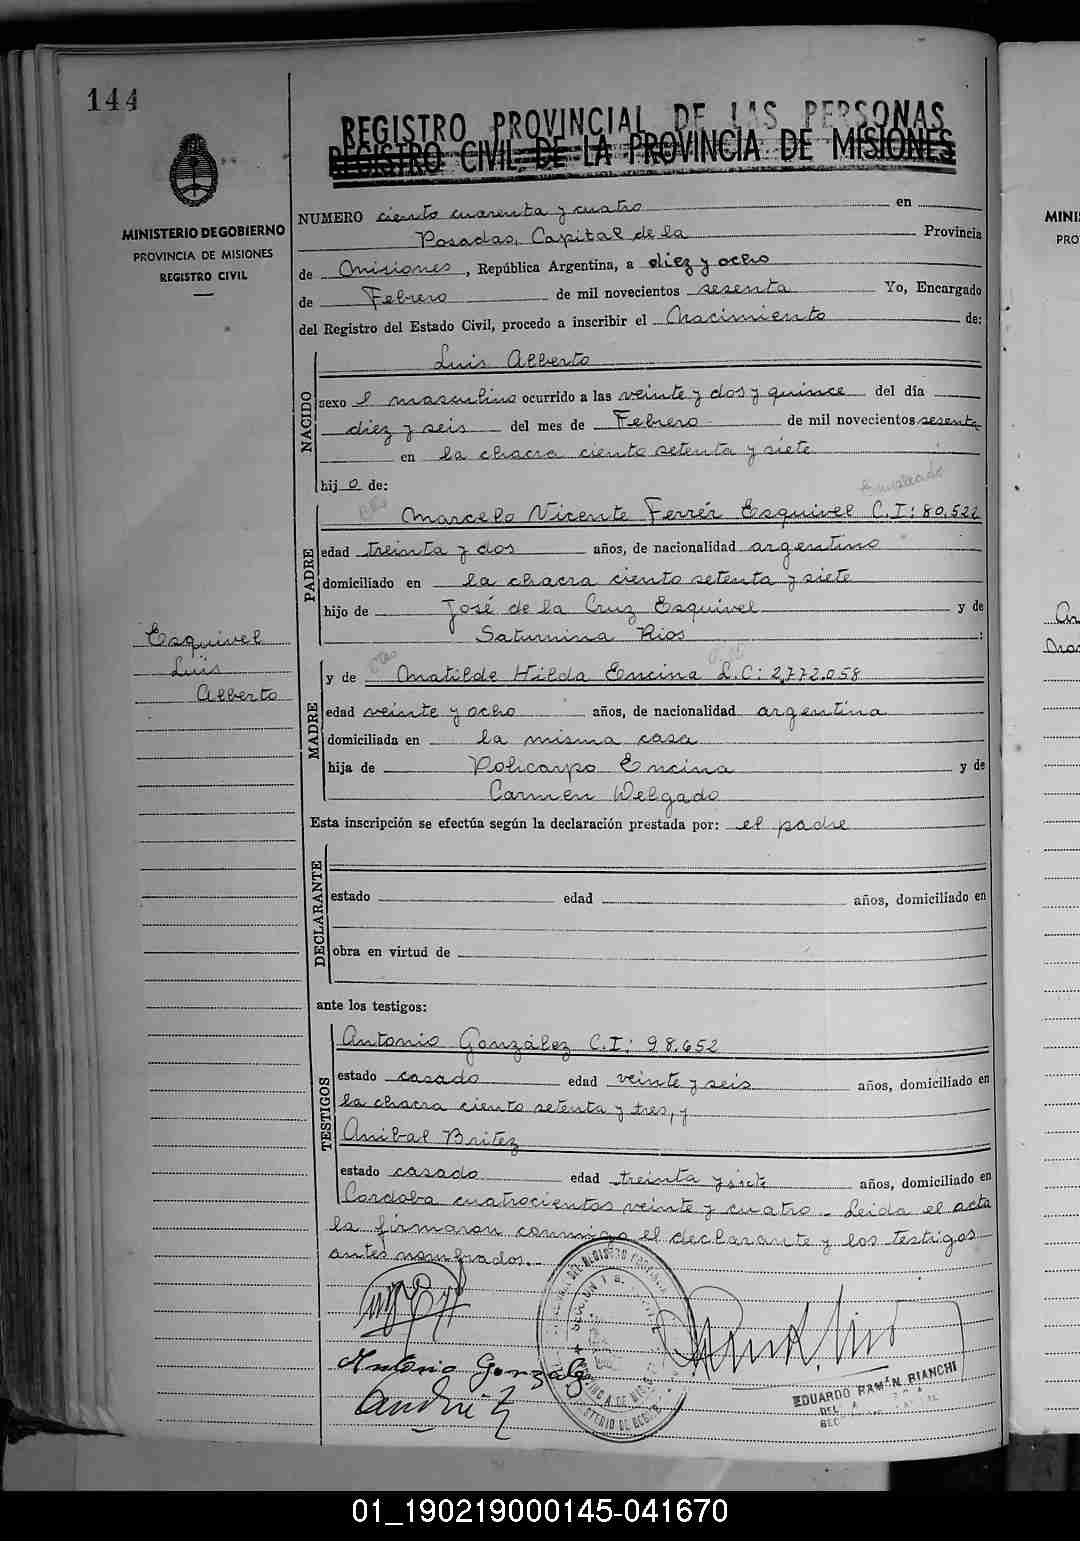 144
REGISTRO PROVINCIAL DE LAS PERSONAS
REGISTRO CIVIL DE LA PROVINCIA DE MISIONES
MINISTERIO DE GOBIERNO
PROVINCIA DE MISIONES
REGISTRO CIVIL
NUMERO ciento cuarenta y cuatro en
Posadas, Capital de la Provincia
de Misiones, República Argentina, a diez y ocho
de Febrero de mil novecientos sesenta Yo, Encargado
del Registro del Estado Civil, procedo a inscribir el Nacimiento de:
NACIDO
Luis Alberto
sexo l masculino ocurrido a las veinte y dos y quince del día
diez y seis del mes de Febrero de mil novecientos sesenta
en la chacra ciento setenta y siete
hijo de:
Empleado
PADRE
Marcelo Vicente Ferrér Esquivel C.I: 80.522
edad treinta y dos años, de nacionalidad argentino
domiciliado en la chacra ciento setenta y siete
hijo de José de la Cruz Esquivel y de
Saturnina Rios :
Esquivel
Luis
Alberto
MADRE
y de Matilde Hilda Encina L.C: 2.772.058
edad veinte y ocho años, de nacionalidad argentina
domiciliada en la misma casa
hija de Policarpo Encina y de
Carmen Delgado
Esta inscripción se efectúa según la declaración prestada por: el padre
DECLARANTE
estado edad años, domiciliado en
obra en virtud de
ante los testigos:
TESTIGOS
Antonio González C.I: 98.652
estado casado edad veinte y seis años, domiciliado en
la chacra ciento setenta y tres, y
Anibal Britez
estado casado edad treinta y siete años, domiciliado en
Cordoba cuatrocientos veinte y cuatro - Leida el acta
la firmaron conmigo el declarante y los testigos
antes nombrados.-
Antonio González
EDUARDO RAMÓN BIANCHI
MINI
PRO
01_190219000145-041670